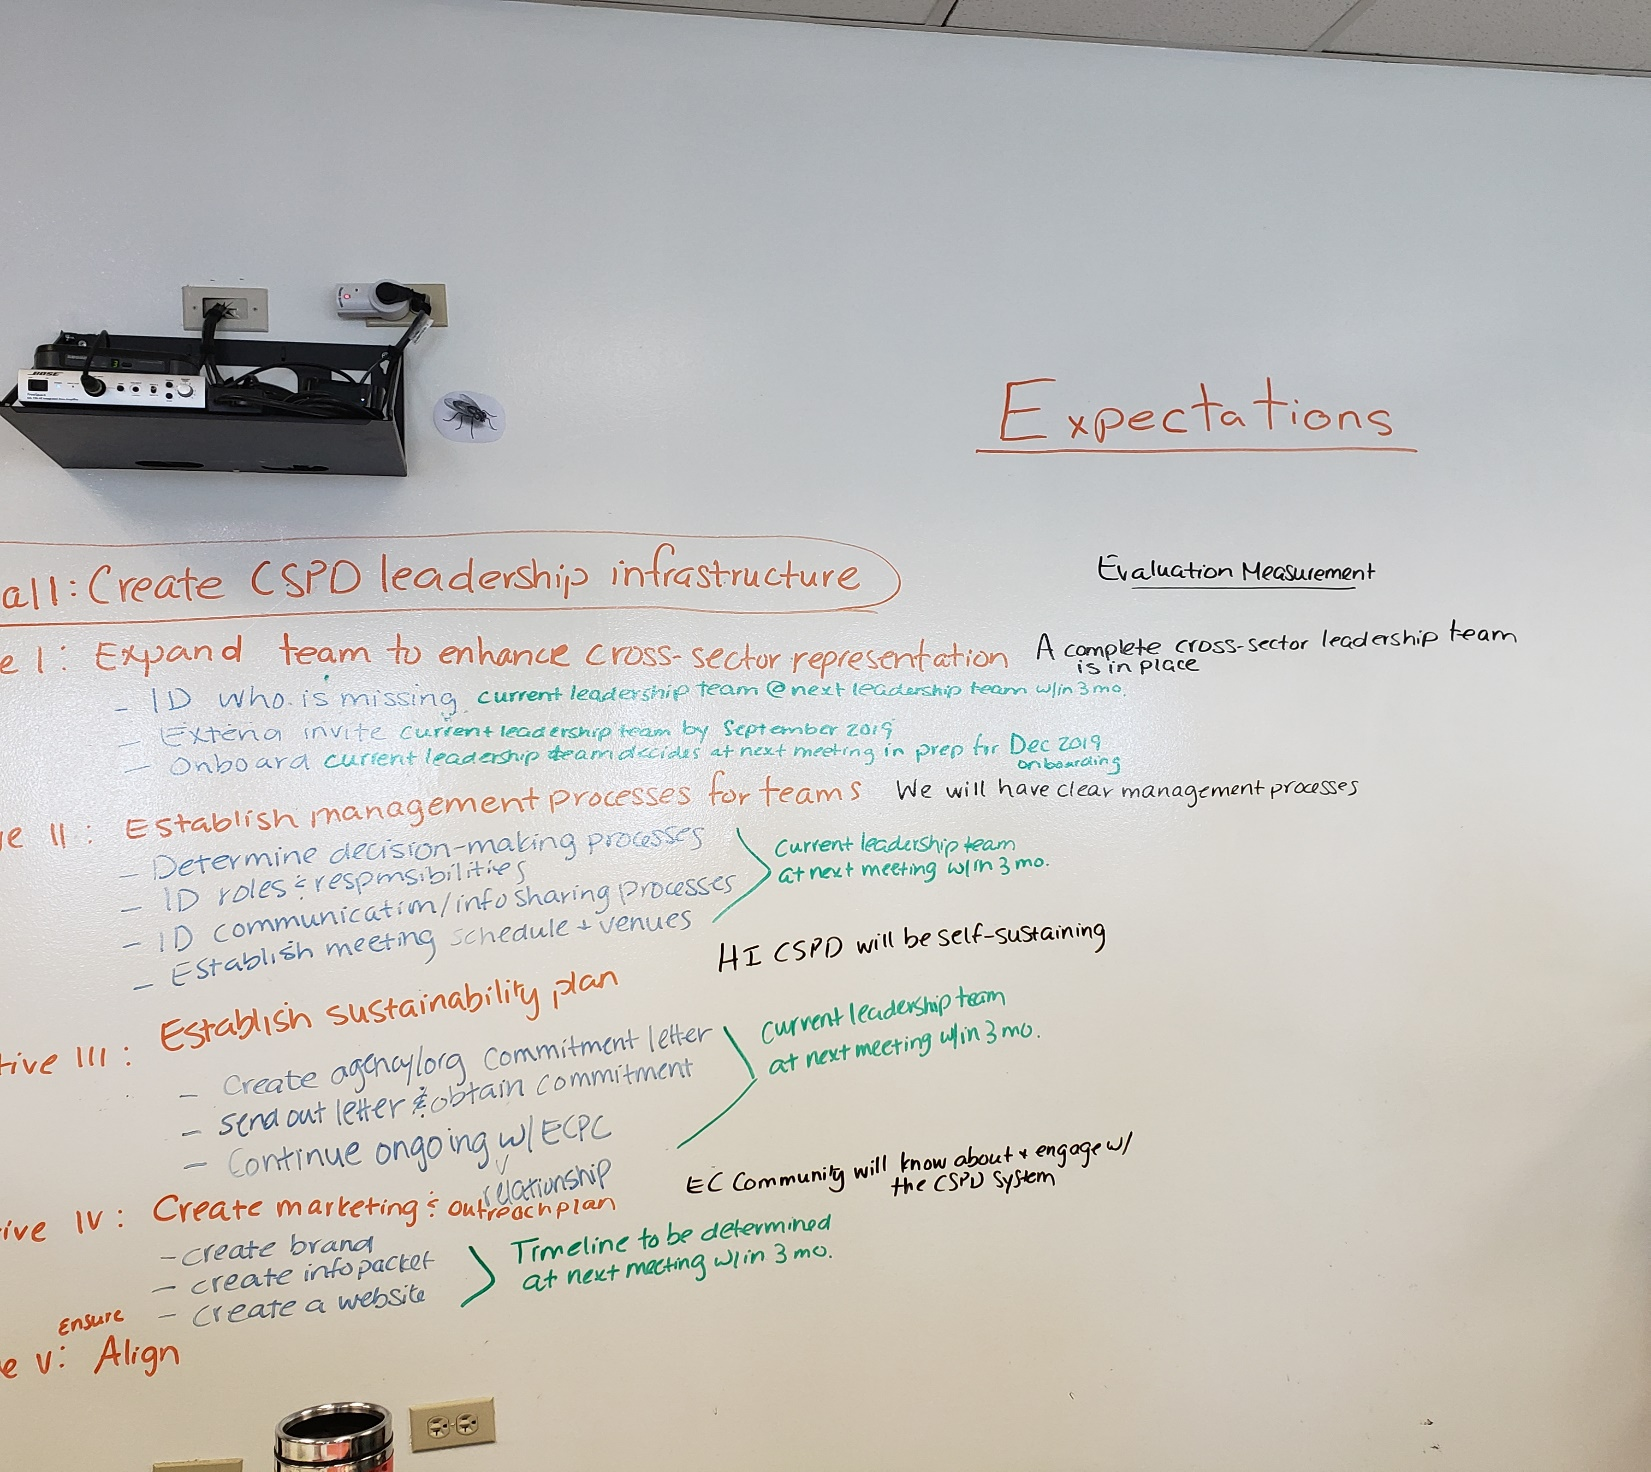 BOSE
Expectations
all: Create CSPD leadership infrastructure
Evaluation Measurement
e I: Expand team to enhance cross-sector representation A complete cross-sector leadership team
is in place
- ID who is missing current leadership team @ next leadership team w/in 3 mo.
- Extend invite current leadership team by September 2019
- Onboard current leadership team decides at next meeting in prep for Dec 2019
onboarding
ve II: Establish management processes for teams We will have clear management processes
- Determine decision-making processes
- ID roles & responsibilities
- ID communication/info sharing processes
- Establish meeting schedule + venues
Current leadership team
at next meeting w/in 3 mo.
HI CSPD will be self-sustaining
tive III: Establish sustainability plan
- Create agency/org commitment letter
- Send out letter & obtain commitment
- Continue ongoing w/ ECPC
relationship
Current leadership team
at next meeting w/in 3 mo.
EC Community will know about + engage w/
the CSPD System
tive IV: Create marketing & outreach plan
- create brand
- create info packet
- create a website
Timeline to be determined
at next meeting w/in 3 mo.
Ensure
e V: Align